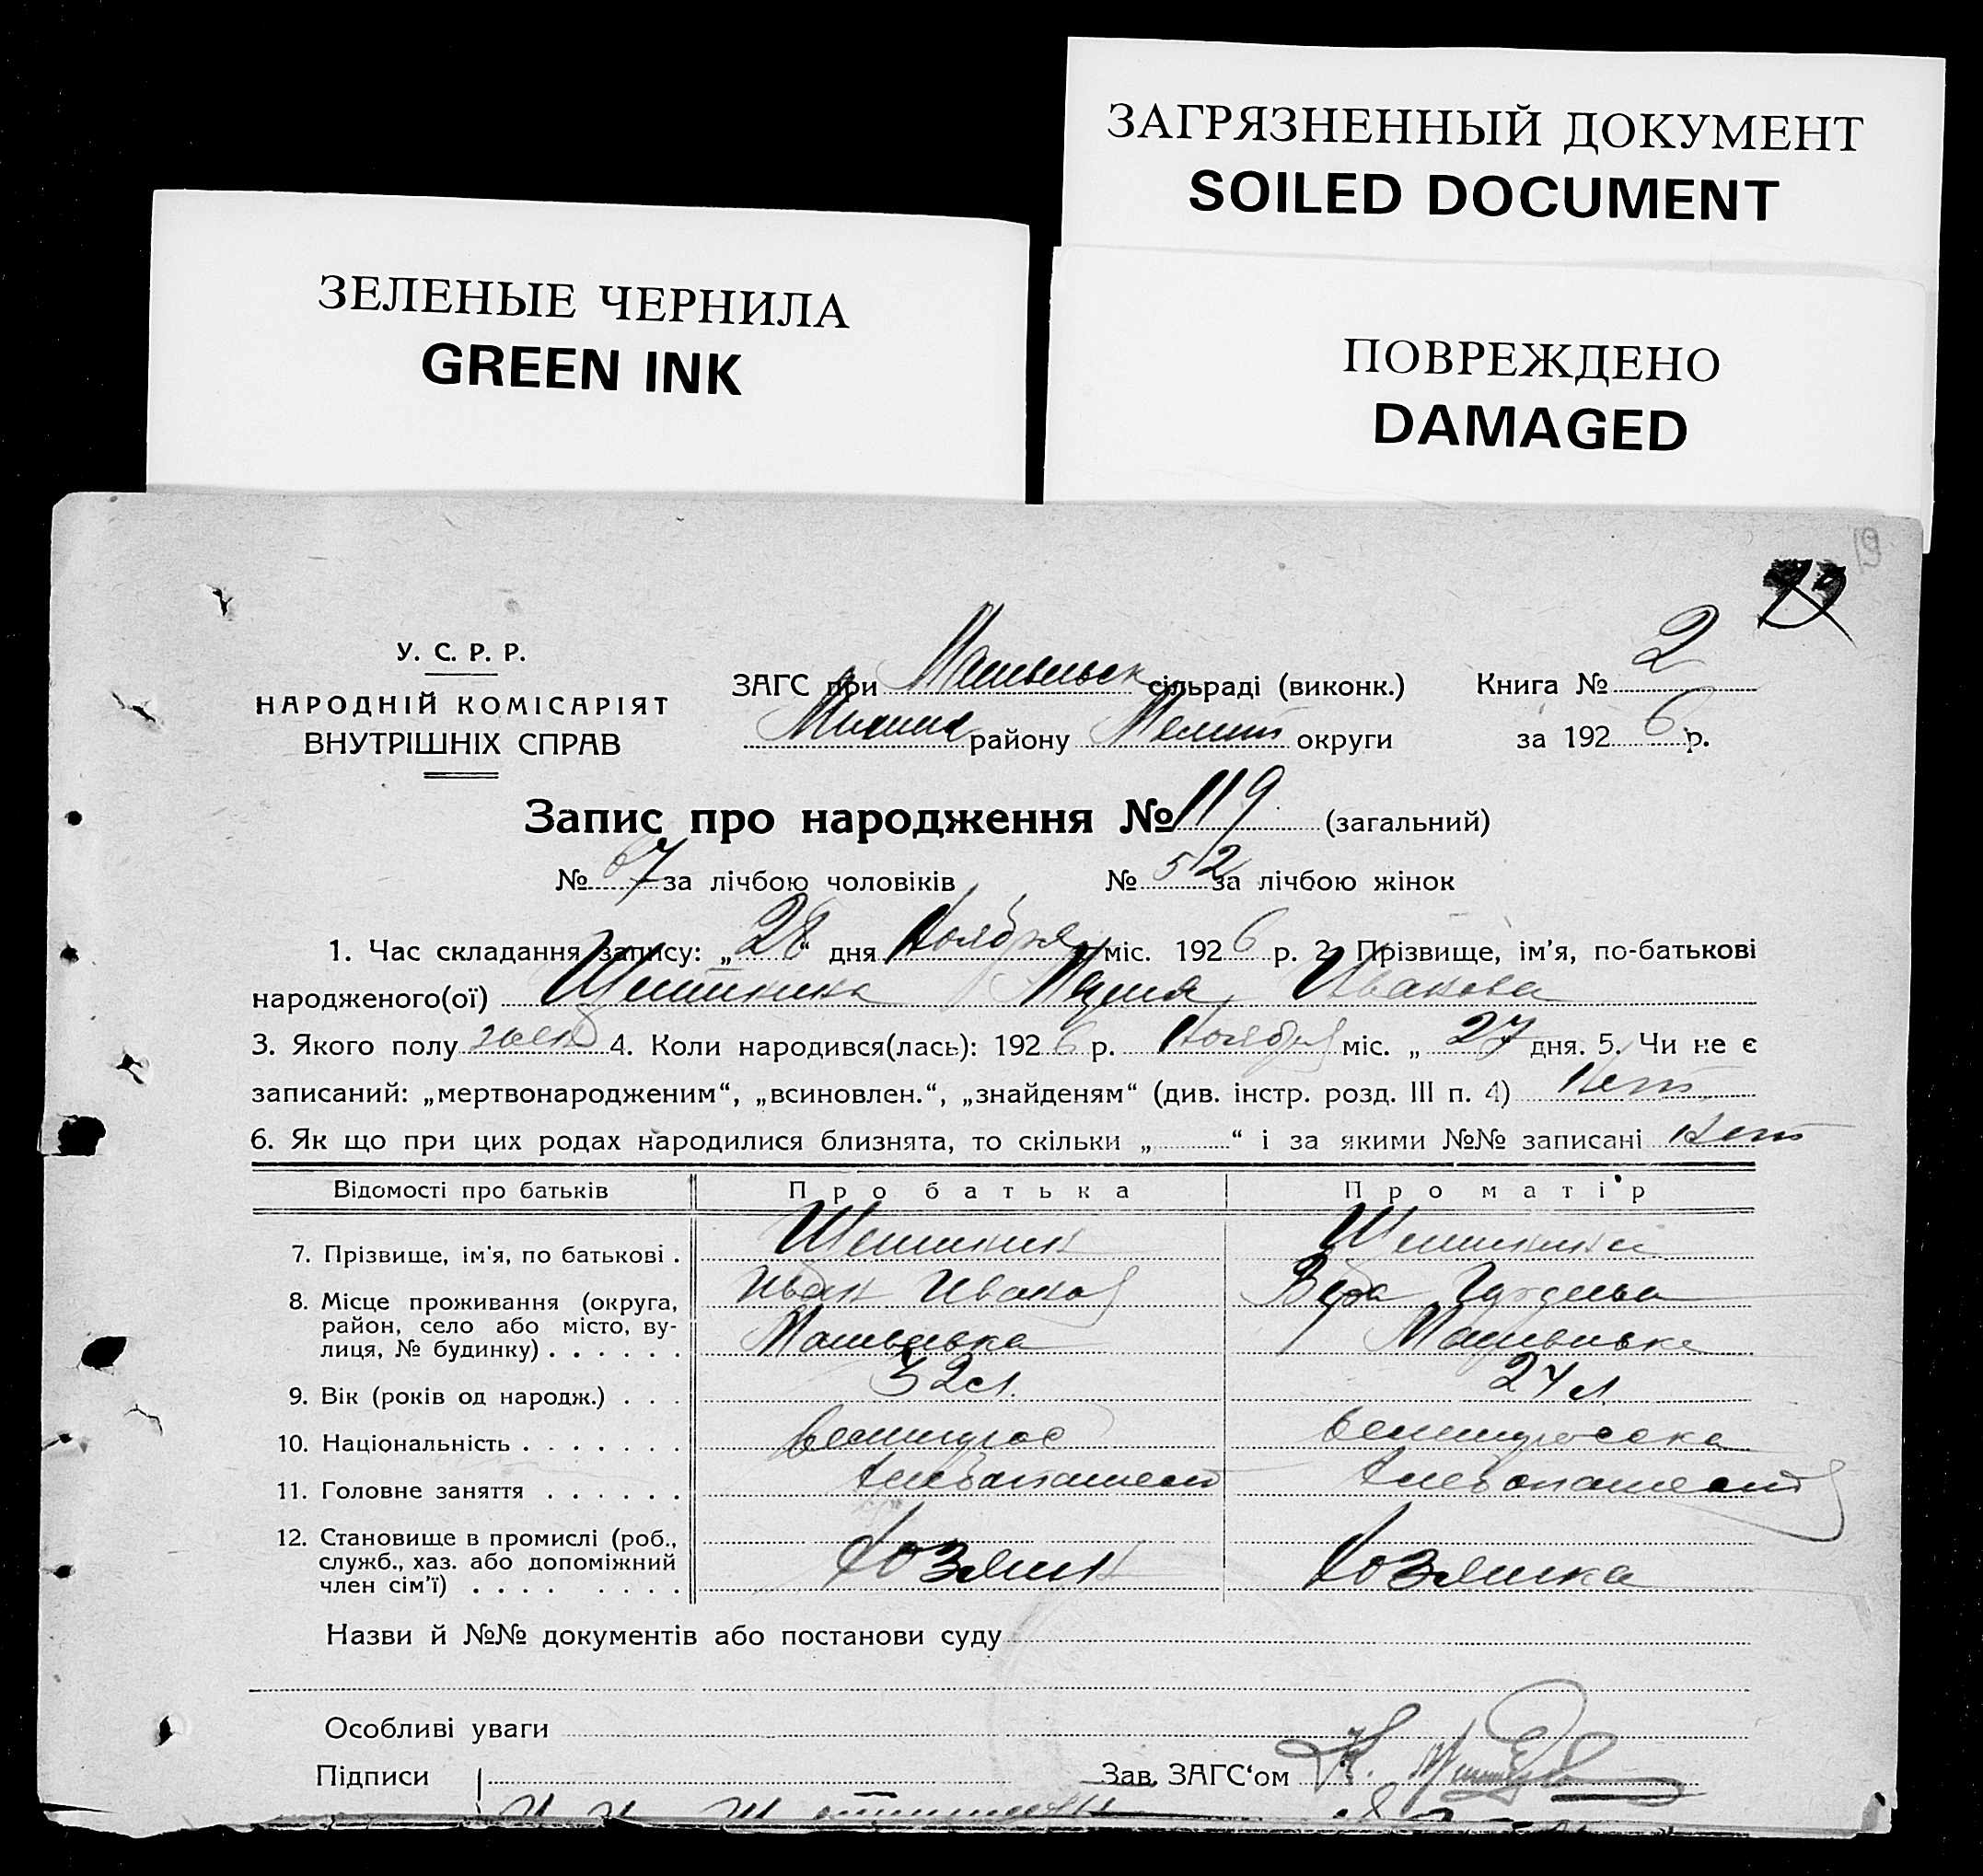 ЗАГРЯЗНЕННЫЙ ДОКУМЕНТ
SOILED DOCUMENT
ЗЕЛЕНЫЕ ЧЕРНИЛА
GREEN INK
ПОВРЕЖДЕНО
DAMAGED
19
У. С. Р. Р.
НАРОДНІЙ КОМІСАРІЯТ
ВНУТРІШНІХ СПРАВ
ЗАГС при сільраді (виконк.) Книга № 2
району Мелит округи за 1926 р.
Запис про народження № 119 (загальний)
№ 67 за лічбою чоловіків № 52 за лічбою жінок
1. Час складання запису: „28“ дня Ноября міс. 1926 р. 2. Прізвище, ім'я, по-батькові
народженого(ої) Мария Иванова
3. Якого полу жен 4. Коли народився(лась): 1926 р. Ноября міс. „27 дня. 5. Чи не є
записаний: „мертвонародженим“, „всиновлен.“, „знайденям“ (див. інстр. розд. III п. 4) Нет
6. Як що при цих родах народилися близнята, то скільки „ “ і за якими №№ записані Нет
Відомості про батьків Про батька Про матір
7. Прізвище, ім'я, по батькові .
Иван Иванов Вера
8. Місце проживання (округа,
район, село або місто, ву-
лиця, № будинку) . . . . . .
9. Вік (років од народж.) . . . 32 л. 27 л
10. Національність . . . . . . . великорос великоросска
11. Головне заняття . . . . . . хлебопашест хлебопашест
12. Становище в промислі (роб.,
служб., хаз. або допоміжний
член сім'ї) . . . . . . . . Хозяин Хозяика
Назви й №№ документів або постанови суду
Особливі уваги
Підписи Зав. ЗАГС'ом